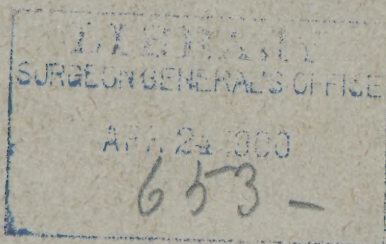 LIBRARY
SURGEON GENERAL'S OFFICE
APR 24 1900
653-